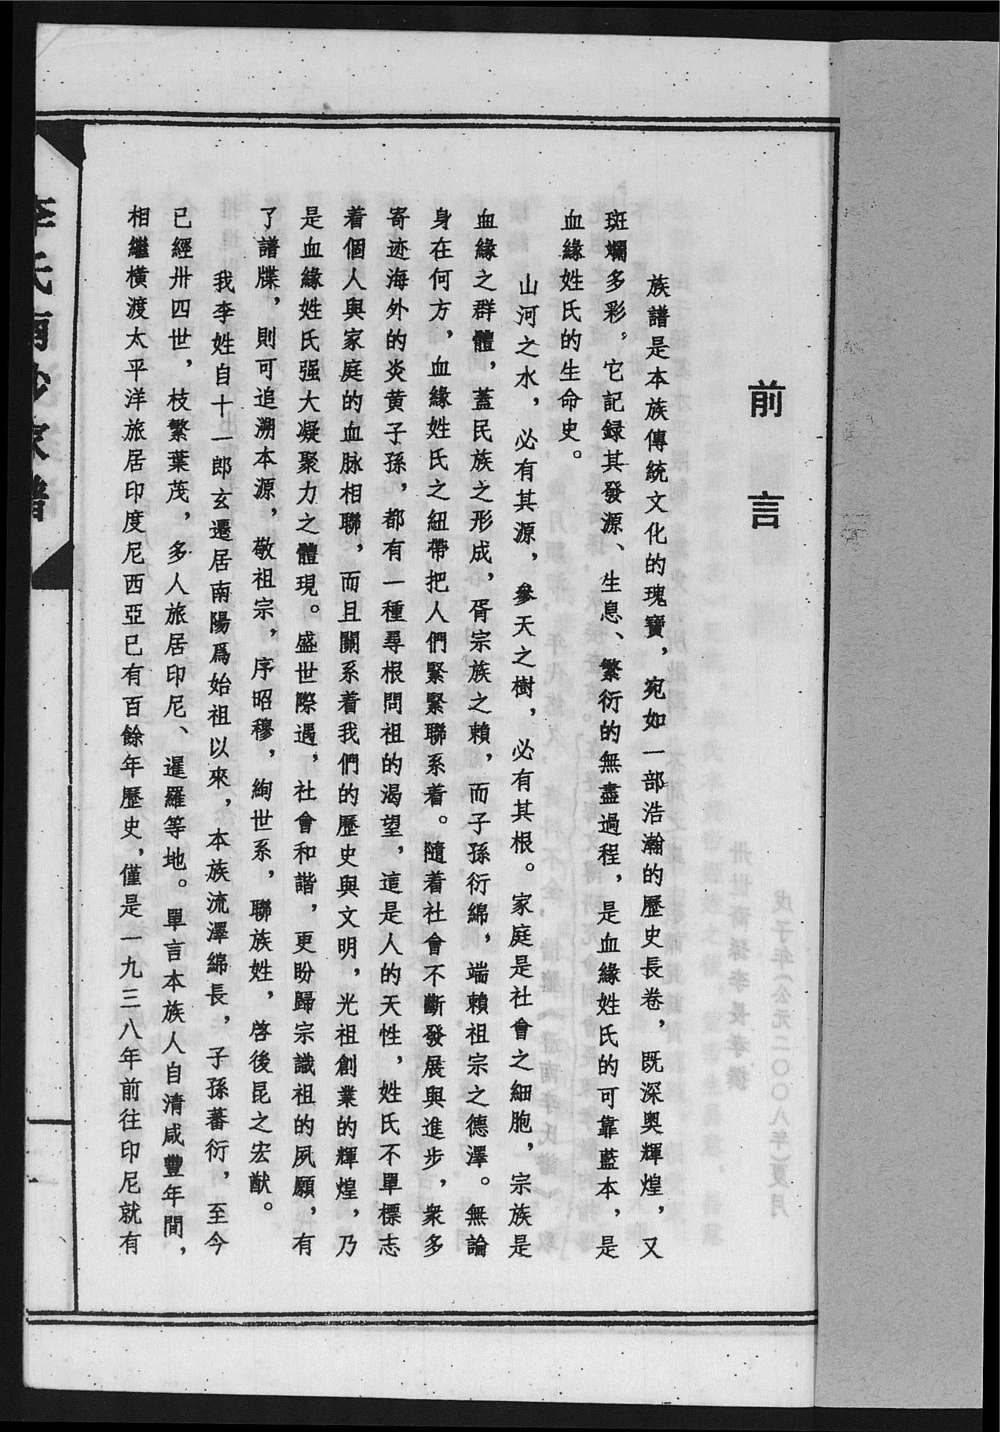 前言
族譜是本族傳統文化的瑰寶，宛如一部浩瀚的歷史長卷，既深奧輝煌，又
斑斕多彩。它記録其發源、生息、繁衍的無盡過程，是血緣姓氏的可靠藍本，是
血緣姓氏的生命史。
山河之水，必有其源，參天之樹，必有其根。家庭是社會之細胞，宗族是
血緣之群體，蓋民族之形成，胥宗族之賴，而子孫衍綿，端賴祖宗之德澤。無論
身在何方，血緣姓氏之紐帶把人們緊緊聯系着。隨着社會不斷發展與進步，衆多
寄迹海外的炎黄子孫，都有一種尋根問祖的渴望，這是人的天性，姓氏不單標志
着個人與家庭的血脉相聯，而且關系着我們的歷史與文明，光祖創業的輝煌，乃
是血緣姓氏强大凝聚力之體現。盛世際遇，社會和諧，更盼歸宗識祖的夙願，有
了譜牒，則可追溯本源，敬祖宗，序昭穆，絢世系，聯族姓，啓後昆之宏猷。
我李姓自十一郎玄遷居南陽爲始祖以來，本族流澤綿長，子孫蕃衍，至今
已經卅四世，枝繁葉茂，多人旅居印尼、暹羅等地。單言本族人自清咸豐年間，
相繼横渡太平洋旅居印度尼西亞已有百餘年歷史，僅是一九三八年前往印尼就有
李氏